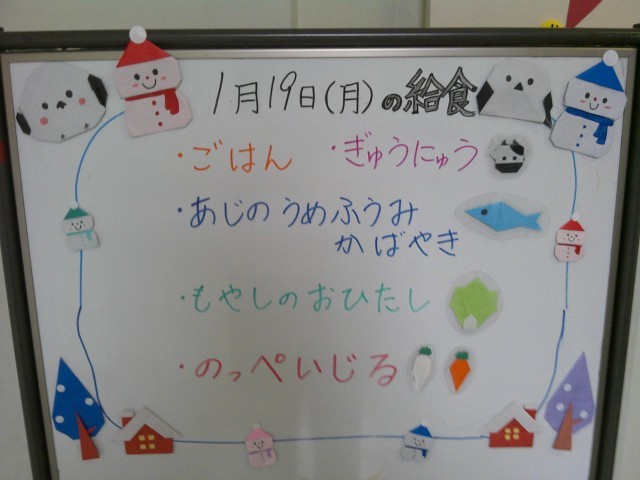 1月19日(月)の給食
・ごはん ・ぎゅうにゅう
・あじのうめふうみ
かばやき
・もやしのおひたし
・のっぺいじる